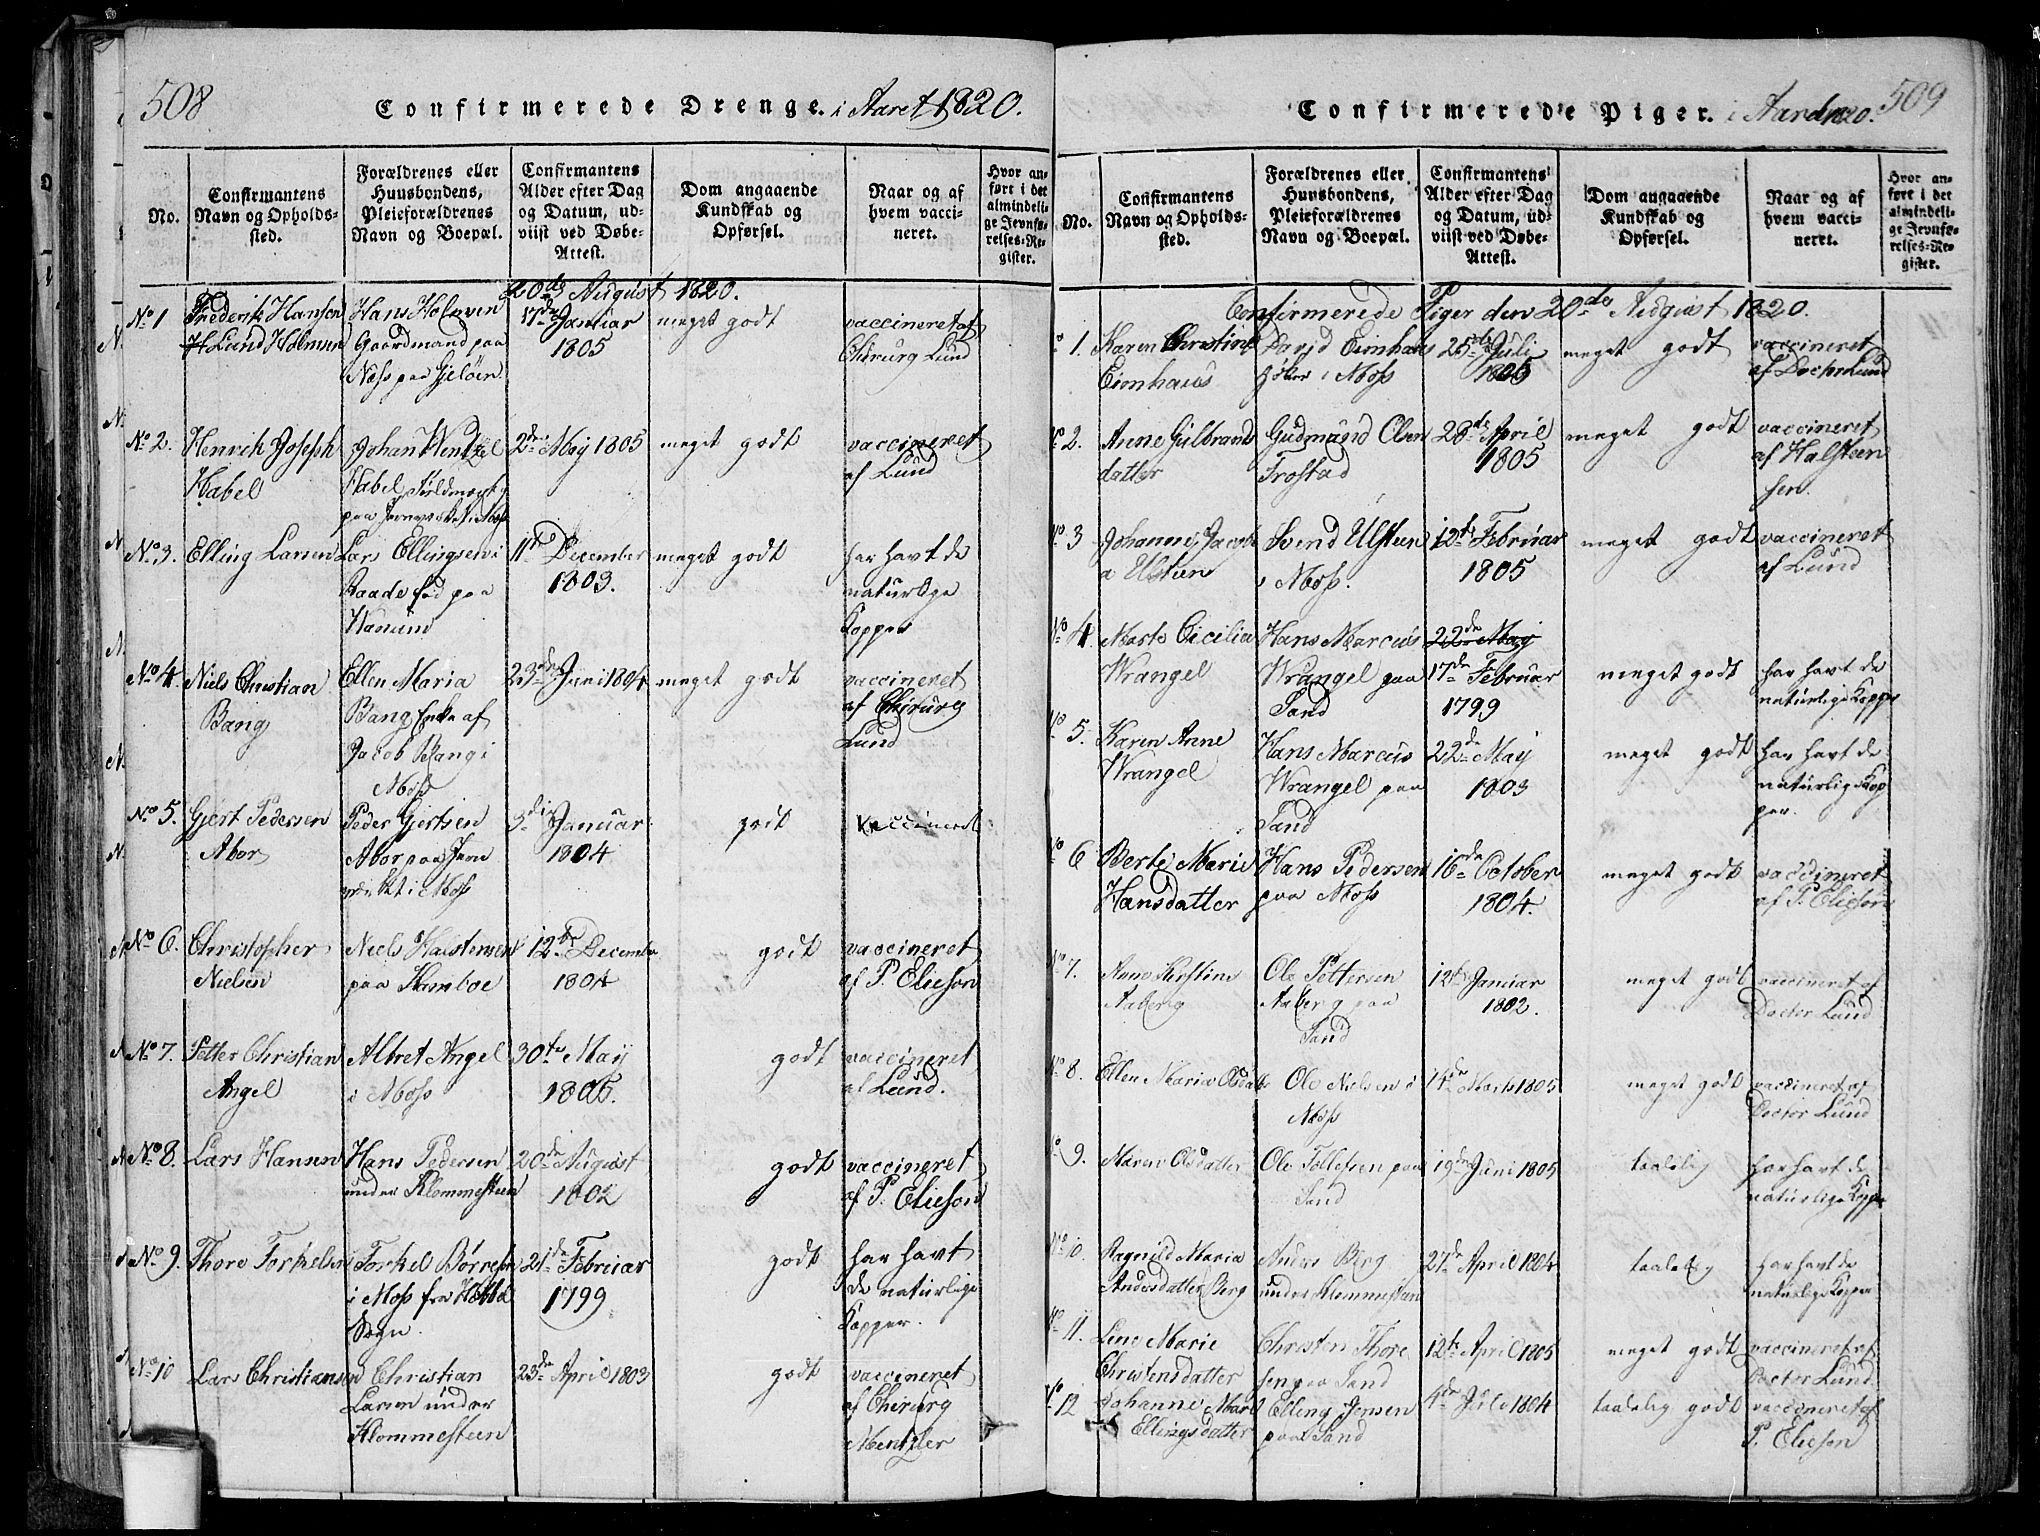 508
Confirmerede Drenge. i Aaret 1820.
No.
Confirmantens Navn og Opholds-sted.
Forældrenes eller Huusbondens, Pleieforældrenes Navn og Boepæl.
Confirmantens Alder efter Dag og Datum, ud-viist ved Døbe-Attest.
Dom angaaende Kundskab og Opførsel.
Naar og af hvem vacci-neret.
Hvor an-ført i det almindeli-ge Jevnfø-relses-Re-gister.
20de August 1820.
No 1 Frederik Hansen Hans Holmsen 17de Januar meget godt vaccineret af
Lund Holmsen Gaardmand paa 1805 Chirurg Lund
Næss paa Gjeløen
No 2. Henrik Joseph Johan Wentzel 2de May 1805 meget godt vaccineret
Habel Habel af Lund
paa Jernværket i Moss
No 3. Elling Larsen Lars Ellingsen i 11te December meget godt har havt de
Raade fød paa 1803. naturlige
Kopper
No 4. Niels Christian Ellen Maria 23de Juni 1804 meget godt vaccineret
Bang Bang Enke af af Chirurg
Jacob Bang i Lund
Moss
No 5. Gjert Pedersen Peder Gjertsen 3die Januar godt vaccineret
Abor Abor paa Jern 1804
værket i Moss
No 6. Christopher Niels Halstensen 12te December godt vaccineret
Nielsen paa 1804 af P. Elieson
No 7. Petter Christian Albret Angel 30te May godt vaccineret
Angel i Moss 1805. af Lund.
No 8. Lars Hansen Hans Pedersen 20de August godt vaccineret
under Klommesteen 1802 af P. Elieson
No 9. Thore Torkelsen Torkel Børresen 21de Februar godt har havt
i Moss fra 1799 de naturlige
Sogn. Kopper.
No 10 Lars Christiansen Christian 23de April 1803 godt vaccineret
Larsen under af Chirurg
Klommesteen Mentzler
509
Confirmerede Piger. i Aaret 1820.
No.
Confirmantens Navn og Opholds-sted.
Forældrenes eller Huusbondens, Pleieforældrenes Navn og Boepæl.
Confirmantens Alder efter Dag og Datum, ud-viist ved Døbe-Attest.
Dom angaaende Kundskab og Opførsel.
Naar og af hvem vacci-neret.
Hvor an-ført i det almindeli-ge Jevnfø-relses-Re-gister.
Confirmerede Piger den 20de August 1820.
No 1. Karen Christine David Eimhaus 25de Juli meget godt vaccineret
Eimhaus i Moss 1805 af Doctor Lund
No 2. Anne Gulbrands Gudmund Olsen 28de April meget godt vaccineret
datter Trostad 1805 af Halsteen
sen.
No 3 Johanne Jacob Svend Ulsteen 12te Februar meget godt vaccineret
a Ulsteen i Moss. 1805 af Lund
No 4. Marte Cicilia Hans Marcus 22de May
Wrangel Wrangel paa 17de Februar meget godt har havt de
Sand 1799 naturlige Kopper
No 5. Karen Anne Hans Marcus 22de May meget godt har havt de
Wrangel Wrangel paa 1803 naturlige Kop
Sand per.
No 6 Berte Marie Hans Pedersen 16de October meget godt vaccineret
Hansdatter paa Moss 1804. af P. Elieson
No 7. Anne Kirstine Ole Pettersen 12te Januar meget godt vaccineret af
Aaberg Aaberg paa 1802. Doctor Lund
Sand
No 8. Ellen Maria Olsdatter Ole Nielsen i 14de Marts 1805 meget godt vaccineret af
Moss Doctor Lund
No 9. Maren Olsdatter Ole Tollefsen paa 19de Juni 1805 taalelig har havt de
Sand naturlige Kopper
No 10. Ragnild Maria Anders Berg 27de April 1804 taalelig har havt de
Andersdatter Berg under Klommesteen naturlige Kopper
No 11. Lene Marie Christen Thore 12te April 1805 meget godt vaccineret af
Christensdatter sen paa Sand Doctor Lund
No 12 Johanne Marie Elling Jensen 4de Juli 1804 taalelig godt vaccineret af
Ellingsdatter paa Sand P. Elieson